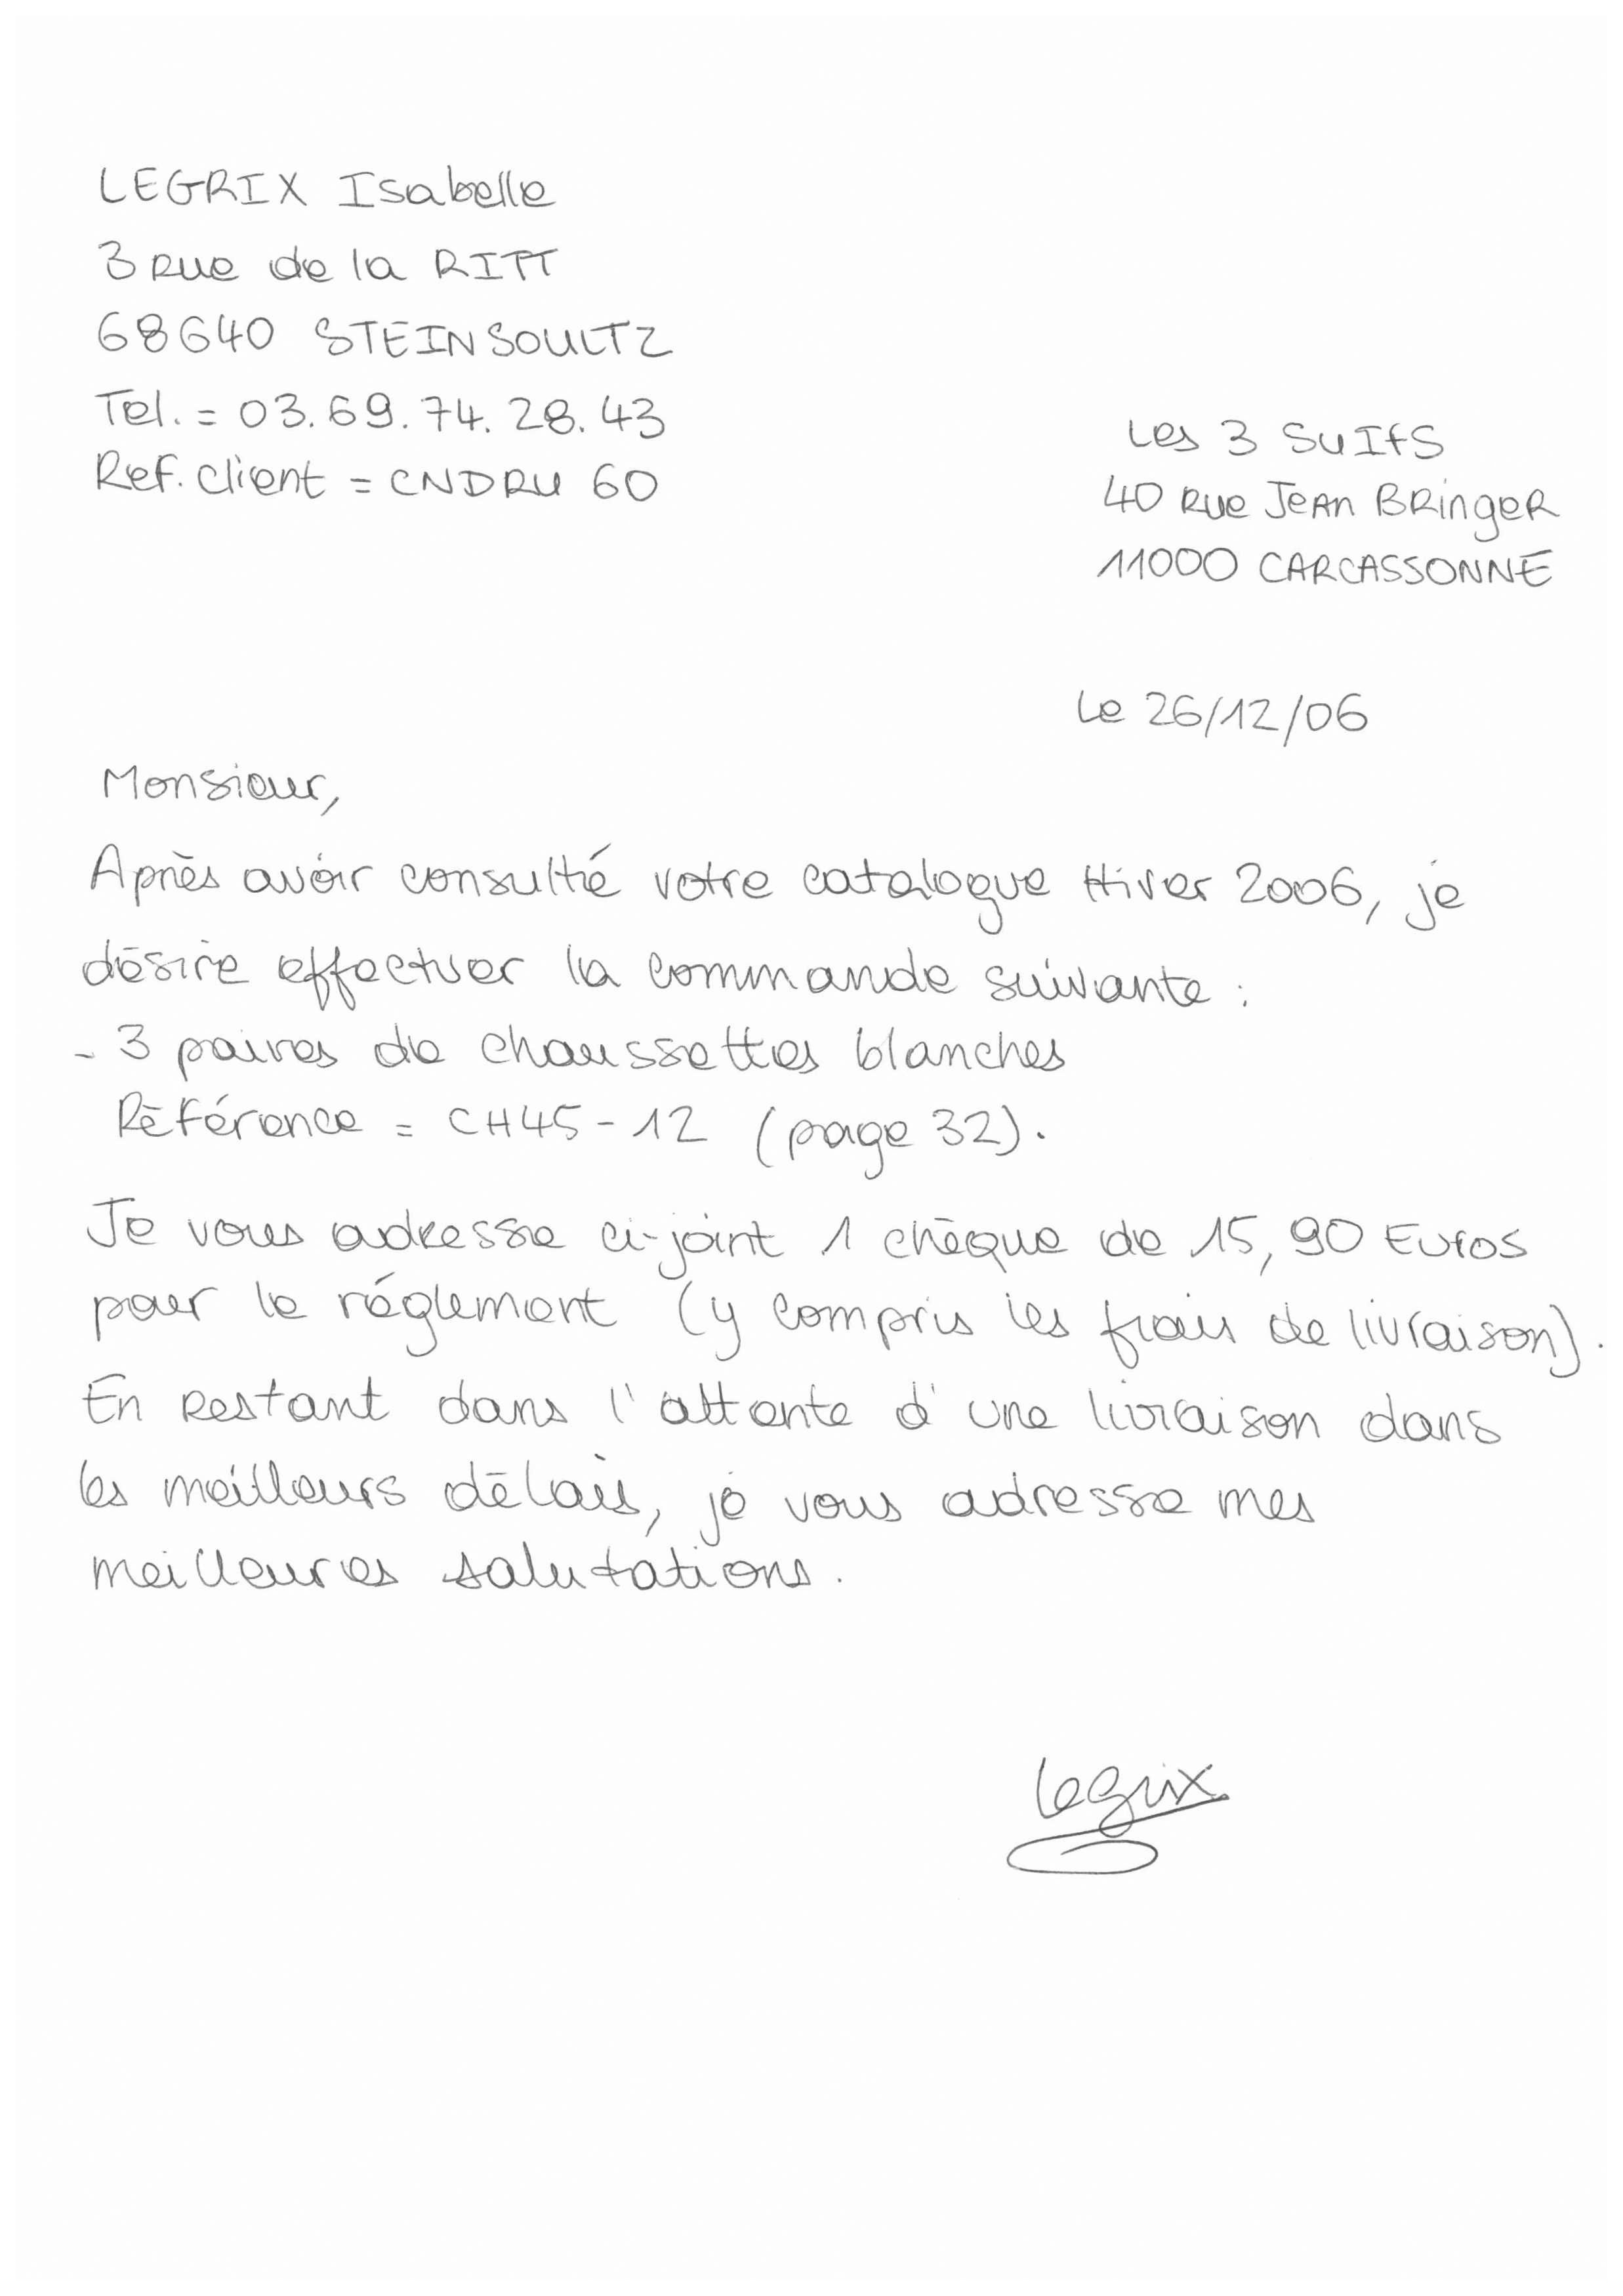 LEGRIX Isabelle
3 rue de la RITT
68640 STEINSOULTZ
Tel. = 03.69.74.28.43
Ref. client = CNDRU 60
Les 3 SUIfS
40 Rue Jean Bringer
11000 CARCASSONNE
Le 26/12/06
Monsieur,
Après avoir consulté votre catalogue Hiver 2006, je
désire effectuer la commande suivante :
- 3 paires de chaussettes blanches
Référence = CH45-12 (page 32).
Je vous adresse ci-joint 1 chèque de 15,90 Euros
pour le réglement (y compris les frais de livraison).
En restant dans l'attente d'une livraison dans
les meilleurs délais, je vous adresse mes
meilleures salutations.
Legrix